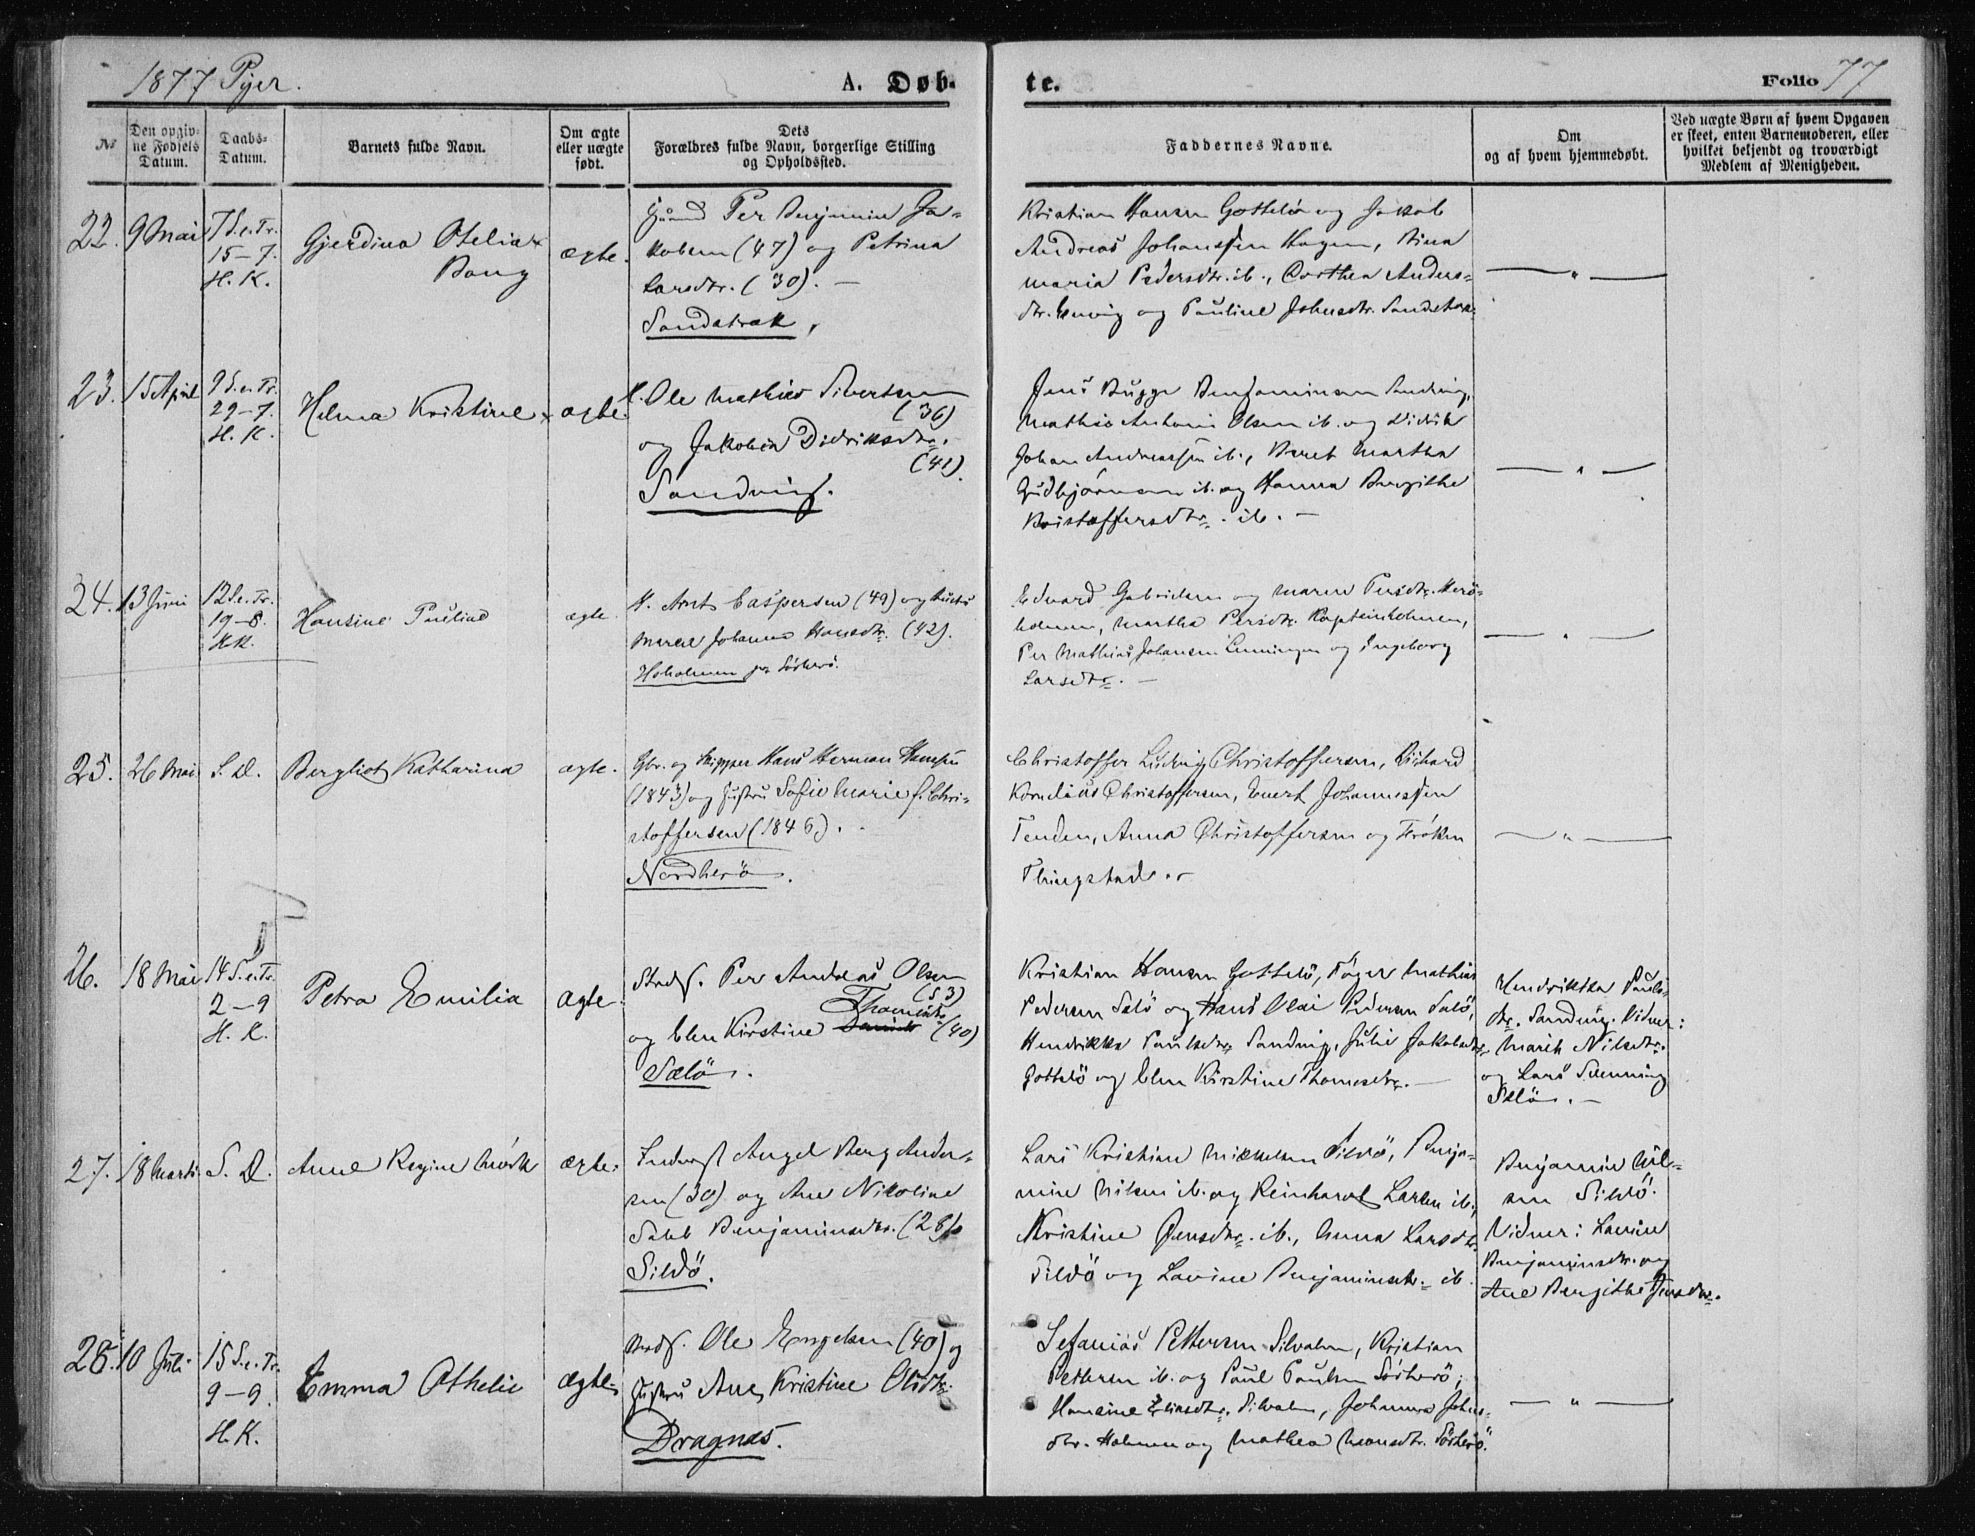 1877 Piger.
A. Døb-
te.
Folio 77
No
Den opgiv-
ne Fødsels
Datum.
Daabs-
Datum.
Barnets fulde Navn.
Om ægte
eller uægte
født.
Dets
Forældres fulde Navn, borgerlige Stilling
og Opholdssted.
Faddernes Navne.
Om
og af hvem hjemmedøbt.
Ved uægte Børn af hvem Opgaven
er skeet, enten Barnemoderen, eller
hvilket bekjendt og troværdigt
Medlem af Menigheden.
22.
9 Mai
7 S. e. Tr.
15-7.
H. K.
Gjerdina Otelia
Bang
ægte.
Per Benjamin Ja-
kobsen (47) og Petrina
Larsdtr. (30). —
Sandstrak,
Kristian Hansen Gotteslö og Jakob
Andreas Johanssen Hagen, Bina
maria Pedersdtr. ib., Dorthea Anders-
dtr. og Pauline Johnsdtr.
— " —
23.
15 April
9 S. e. Tr.
29-7.
H. K.
Helma Kristine
ægte.
Ole Mathias Sivertsen
(36)
og Jakobia Didriksdtr.
(41).
Sandvig.
Jens Bugge Benjaminsen Sandvig,
Mathis Antoni Olsen ib. og Didrik
Johan Andreassen ib., Beret Martha
ib. og Hanna Bergithe
Kristoffersdtr. ib. —
— " —
24.
13 Juni
12 S. e. Tr.
19-8.
H.K.
Hansine Pauline
ægte.
H. Arnt Caspersen (49) og Hustru
Johanna Hansdtr. (42).
Hoholmen pr. Sörherö.
Edvard Gabrielsen og Maren Persdtr. Herö-
holmen, Martha Persdtr. Kapteinholmen,
Per Mathias Johansen og Ingeborg
Larsdtr. —
— " —
25.
26 Mai
S. D.
Bergliot Katharina
ægte.
Gbr. og Skipper Hans Herman Hansen
(1843) og Hustru Sofie Marie f. Chri-
stoffersen (1846).
Nordherö.
Christoffer Ludvig Christoffersen, Richard
Kornelius Christoffersen, Evert Johannessen
Tenden, Anna Christoffersen og Fröken
Thingstad. —
— " —
26.
18 Mai
14 S. e. Tr.
2-9
H. K.
Petra Emilia
ægte.
Strds. Per Andreas Olsen
(53)
Thomesdtr.
og Elen Kirstine (40)
Sælö.
Kristian Hansen Gotteslö, Töger Mathias
Pedersen Salö og Hans Olai Pedersen Salö,
Hendrikka Paulsdtr. Sandvig, Julie Jakobsdtr.
Gotteslö og Elen Kirstine Thomesdtr. —
Hendrikka Pauls-
dtr. Sandvig. Vidner:
Marit Nilsdtr.
og Lars
Sælö. —
27.
18 Marts.
S. D.
Anne Regine Mörk
ægte.
Inderst Angel Berg Ander-
sen (30) og Ane Nikoline
Benjaminsdtr. (28)
Sildö.
Lars Kristian Mikkelsen Sildö, Benja-
min Nilsen ib. og Reinhardt Larsen ib.,
Kristine Jensdtr. ib., Anna Larsdtr.
Sildö og Lavine Benjaminsdtr. ib.
Benjamin Nil-
sen Sildö.
Vidner: Lavine
Benjaminsdtr. og
Ane Bergithe Jensdtr.
28.
10 Juli
15 S. e. Tr.
9-9.
H. K.
Emma Othelie
ægte.
Strds. Ole Engelsen (40) og
Hustru Ane Kristine Olsdtr.
Dragnæs.
Sefanias Pettersen Silvalen, Kristian
Pettersen ib. og Paul Paulsen Sörherö,
Hansine Eliasdtr. Silvalen, Johanna Johns-
dtr. Holmen og Mathea Monsdtr. Sörherö.
— " —